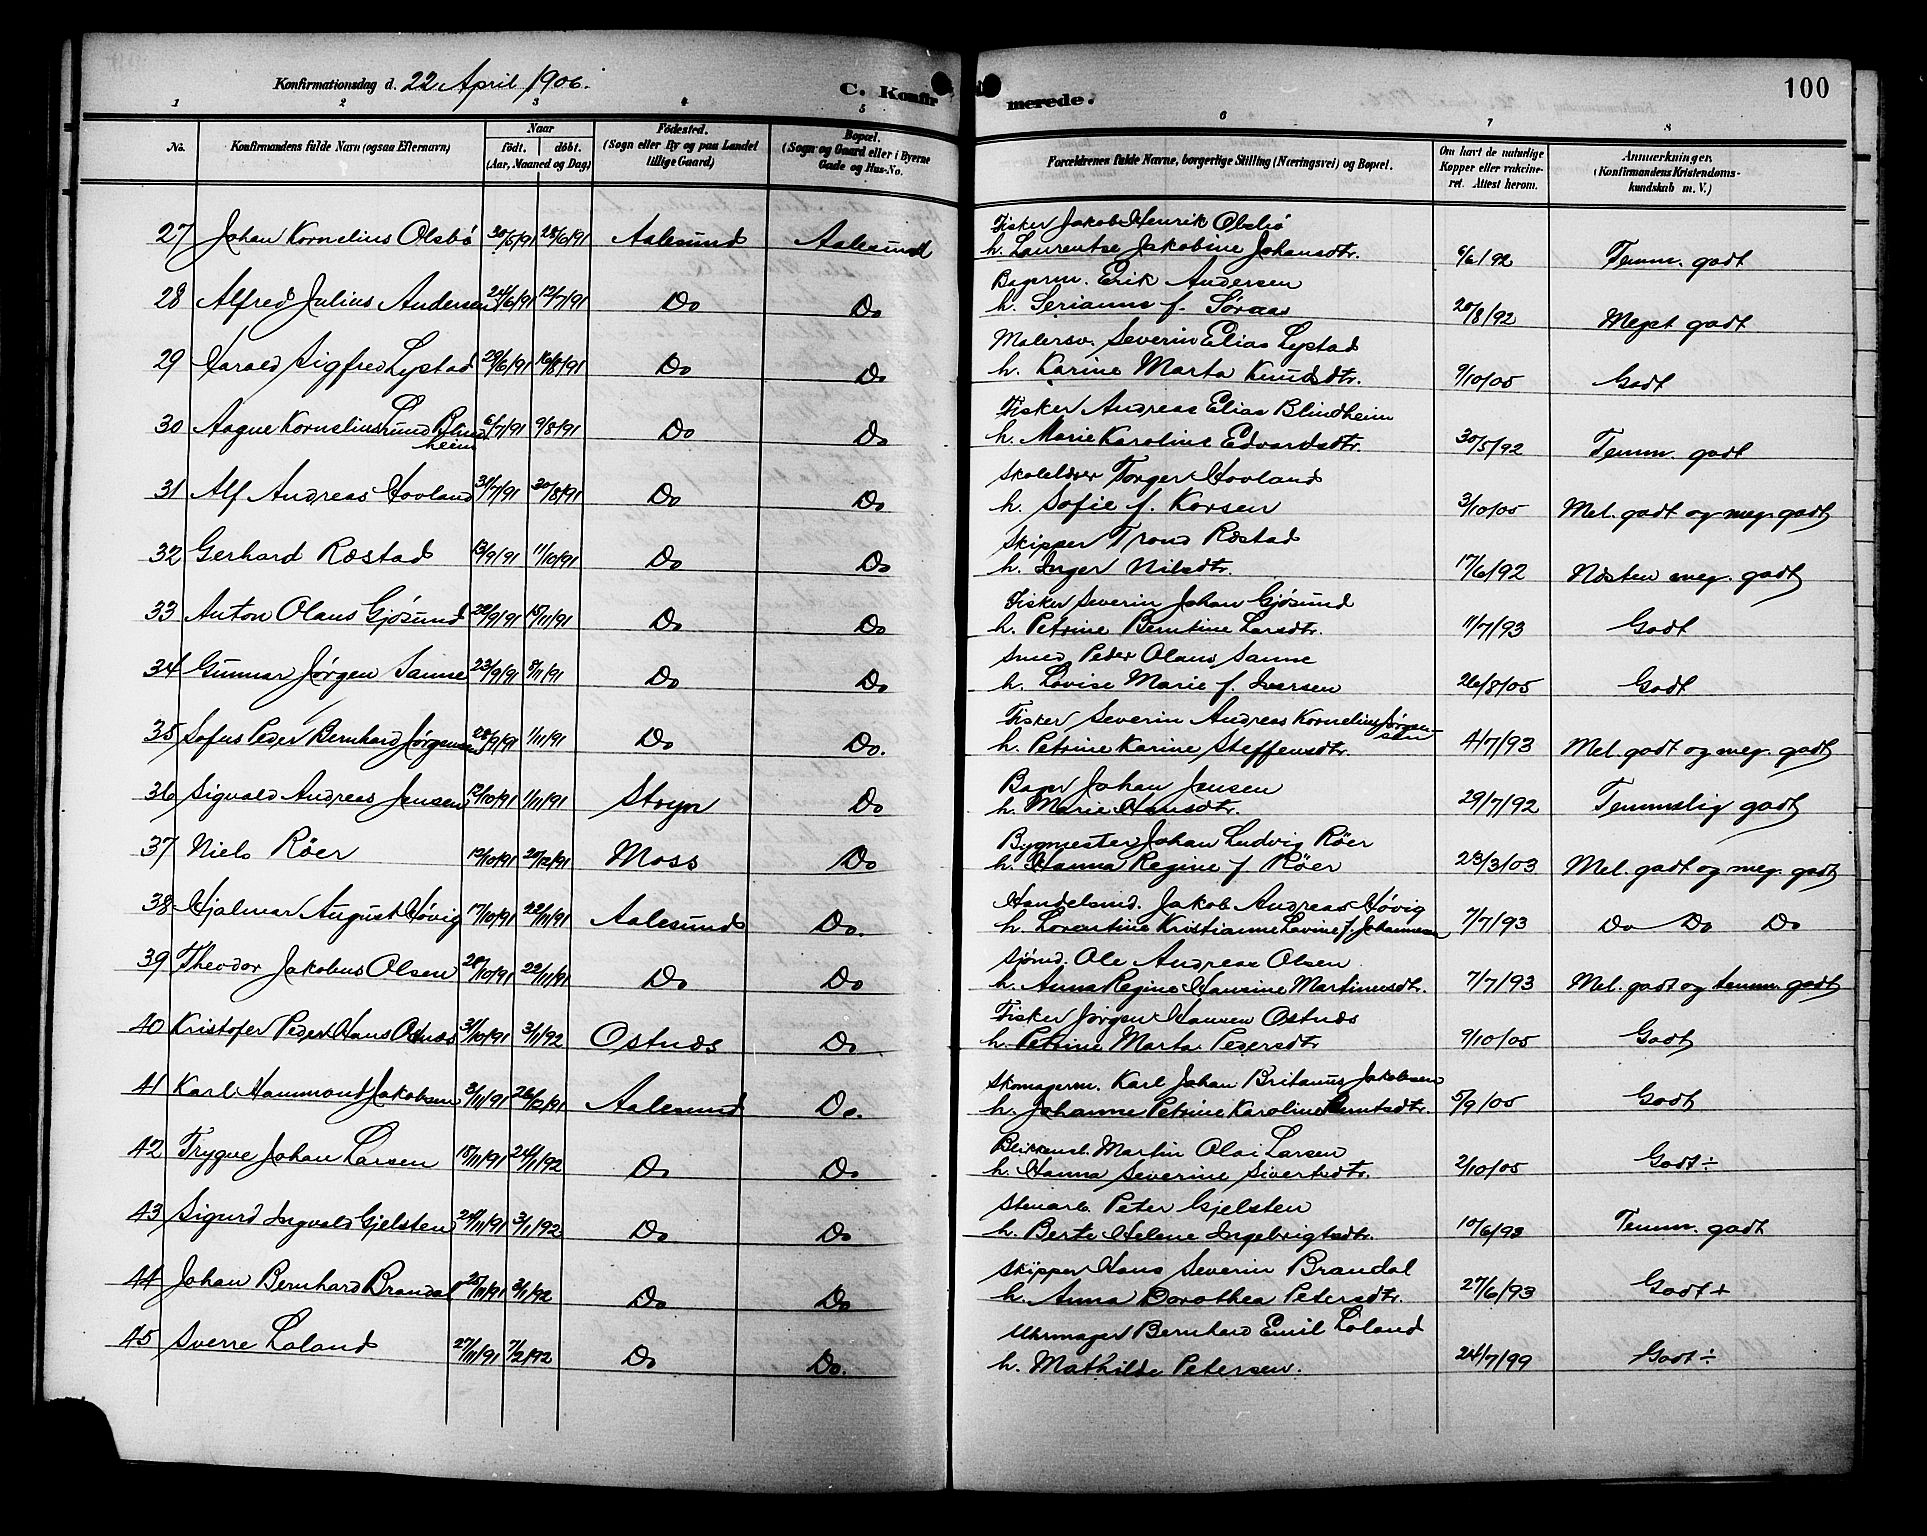 Konfirmationsdag d. 22 April 1906.
C. Konfirmerede.
100
1 2 3 4 5 6 7 8
No. Konfirmandens fulde Navn (ogsaa Efternavn) Naar født. døbt. (Aar, Maaned og Dag) Fødested. (Sogn eller By og paa Landet tillige Gaard) Bopæl. (Sogn og Gaard eller i Byerne Gade og Hus-No. Forældrenes fulde Navne, borgerlige Stilling (Næringsvei) og Bopæl. Om havt de naturlige Kopper eller vakcineret. Attest herom. Anmærkninger. (Konfirmandens Kristendomskundskab m. V.)
27 Johan Kornelius Olsbø 30/5/91 28/6/91 Aalesund Aalesund Fisker Jakob Henrik Olsbø
h. Laurentse Jakobine Johansdtr. 6/6/92 Temm. godt
28 Alfred Julius Andersen 24/6/91 12/7/91 Do Do Bagerm. Erik Andersen
h. Serianne f. Søraas 20/8/92 Meget godt
29 Harald Sigfred Lystad 29/6/91 16/8/91 Do Do Malersv. Severin Elias Lystad
h. Karine Marta Knudsdtr. 9/10/05 Godt
30 Aagne Kornelius Lund Blindheim 6/7/91 9/8/91 Do Do Fisker Andreas Elias Blindheim
h. Marie Karoline Edvardsdtr. 30/5/92 Temm. godt
31 Alf Andreas Hovland 31/7/91 30/8/91 Do Do Skolelærer Torger Hovland
h. Sofie f. Korsen 3/10/05 Mel. godt og meg. godt
32 Gerhard Ræstad 13/9/91 11/10/91 Do Do Skipper Trond Ræstad
h. Inger Nilsdtr. 17/6/92 Næsten meg. godt
33 Anton Olaus Gjøsund 22/9/91 15/11/91 Do Do Fisker Severin Johan Gjøsund
h. Petrine Berntine Larsdtr. 11/7/93 Godt
34 Gunnar Jørgen Sanne 23/9/91 8/11/91 Do Do Smed Peder Olaus Sanne
h. Lovise Marie f. Iversen 26/8/05 Godt
35 Sofus Peder Bernhard Jørgensen 28/9/91 1/11/91 Do Do. Fisker Severin Andreas Kornelius Jørgensen
h. Petrine Karine Steffensdtr. 4/7/93 Mel. godt og meg. godt
36 Sigvald Andreas Jensen 12/10/91 1/11/91 Stryn Do Bager Johan Jensen
h. Marie Hansdtr. 29/7/92 Temmelig godt
37 Niels Røer 12/10/91 20/12/91 Moss Do Bygmester Johan Ludvig Røer
h. Hanna Regine f. Røer 23/3/03 Mel. godt og meg. godt
38 Hjalmar August Høvig 17/10/91 22/11/91 Aalesund Do. Handelsmd. Jakob Andreas Høvig
h. Lorentine Kristianne Lovine f. Johannesen 7/7/93 Do Do Do
39 Theodor Jakobus Olsen 20/10/91 22/11/91 Do Do Sjømd. Ole Andreas Olsen
h. Anna Regine Hansine Martinusdtr. 7/7/93 Mel. godt og temm. godt
40 Kristofer Peder Hans Ostnæs 31/10/91 3/1/92 Ostnæs Do Fisker Jørgen Hansen Ostnæs
h. Petrine Marta Pedersdtr 9/10/05 Godt
41 Karl Hammond Jakobsen 3/11/91 26/12/91 Aalesund Do. Skomagerm. Karl Johan Britanus Jakobsen
h. Johanne Petrine Karoline Berntsdtr. 5/9/05 Godt
42 Trygve Johan Larsen 18/11/91 24/1/92 Do Do Blikkensl. Martin Olai Larsen
h. Hanna Severine Sivertsdtr. 2/10/05 Godt ÷
43 Sigurd Ingvald Gjelsten 24/11/91 3/1/92 Do Do Stuarb. Peter Gjelsten
h. Berte Helene Ingebrigtsdtr. 10/6/93 Temm. godt
44 Johan Bernhard Brandal 25/11/91 3/1/92 Do Do Skipper Hans Severin Brandal
h. Anna Dorothea Petersdtr. 27/6/93 Godt +
45 Sverre Loland 27/11/91 7/2/92 Do Do. Uhrmager Bernhard Emil Loland
h. Mathilde Petersen. 24/7/99 Godt ÷